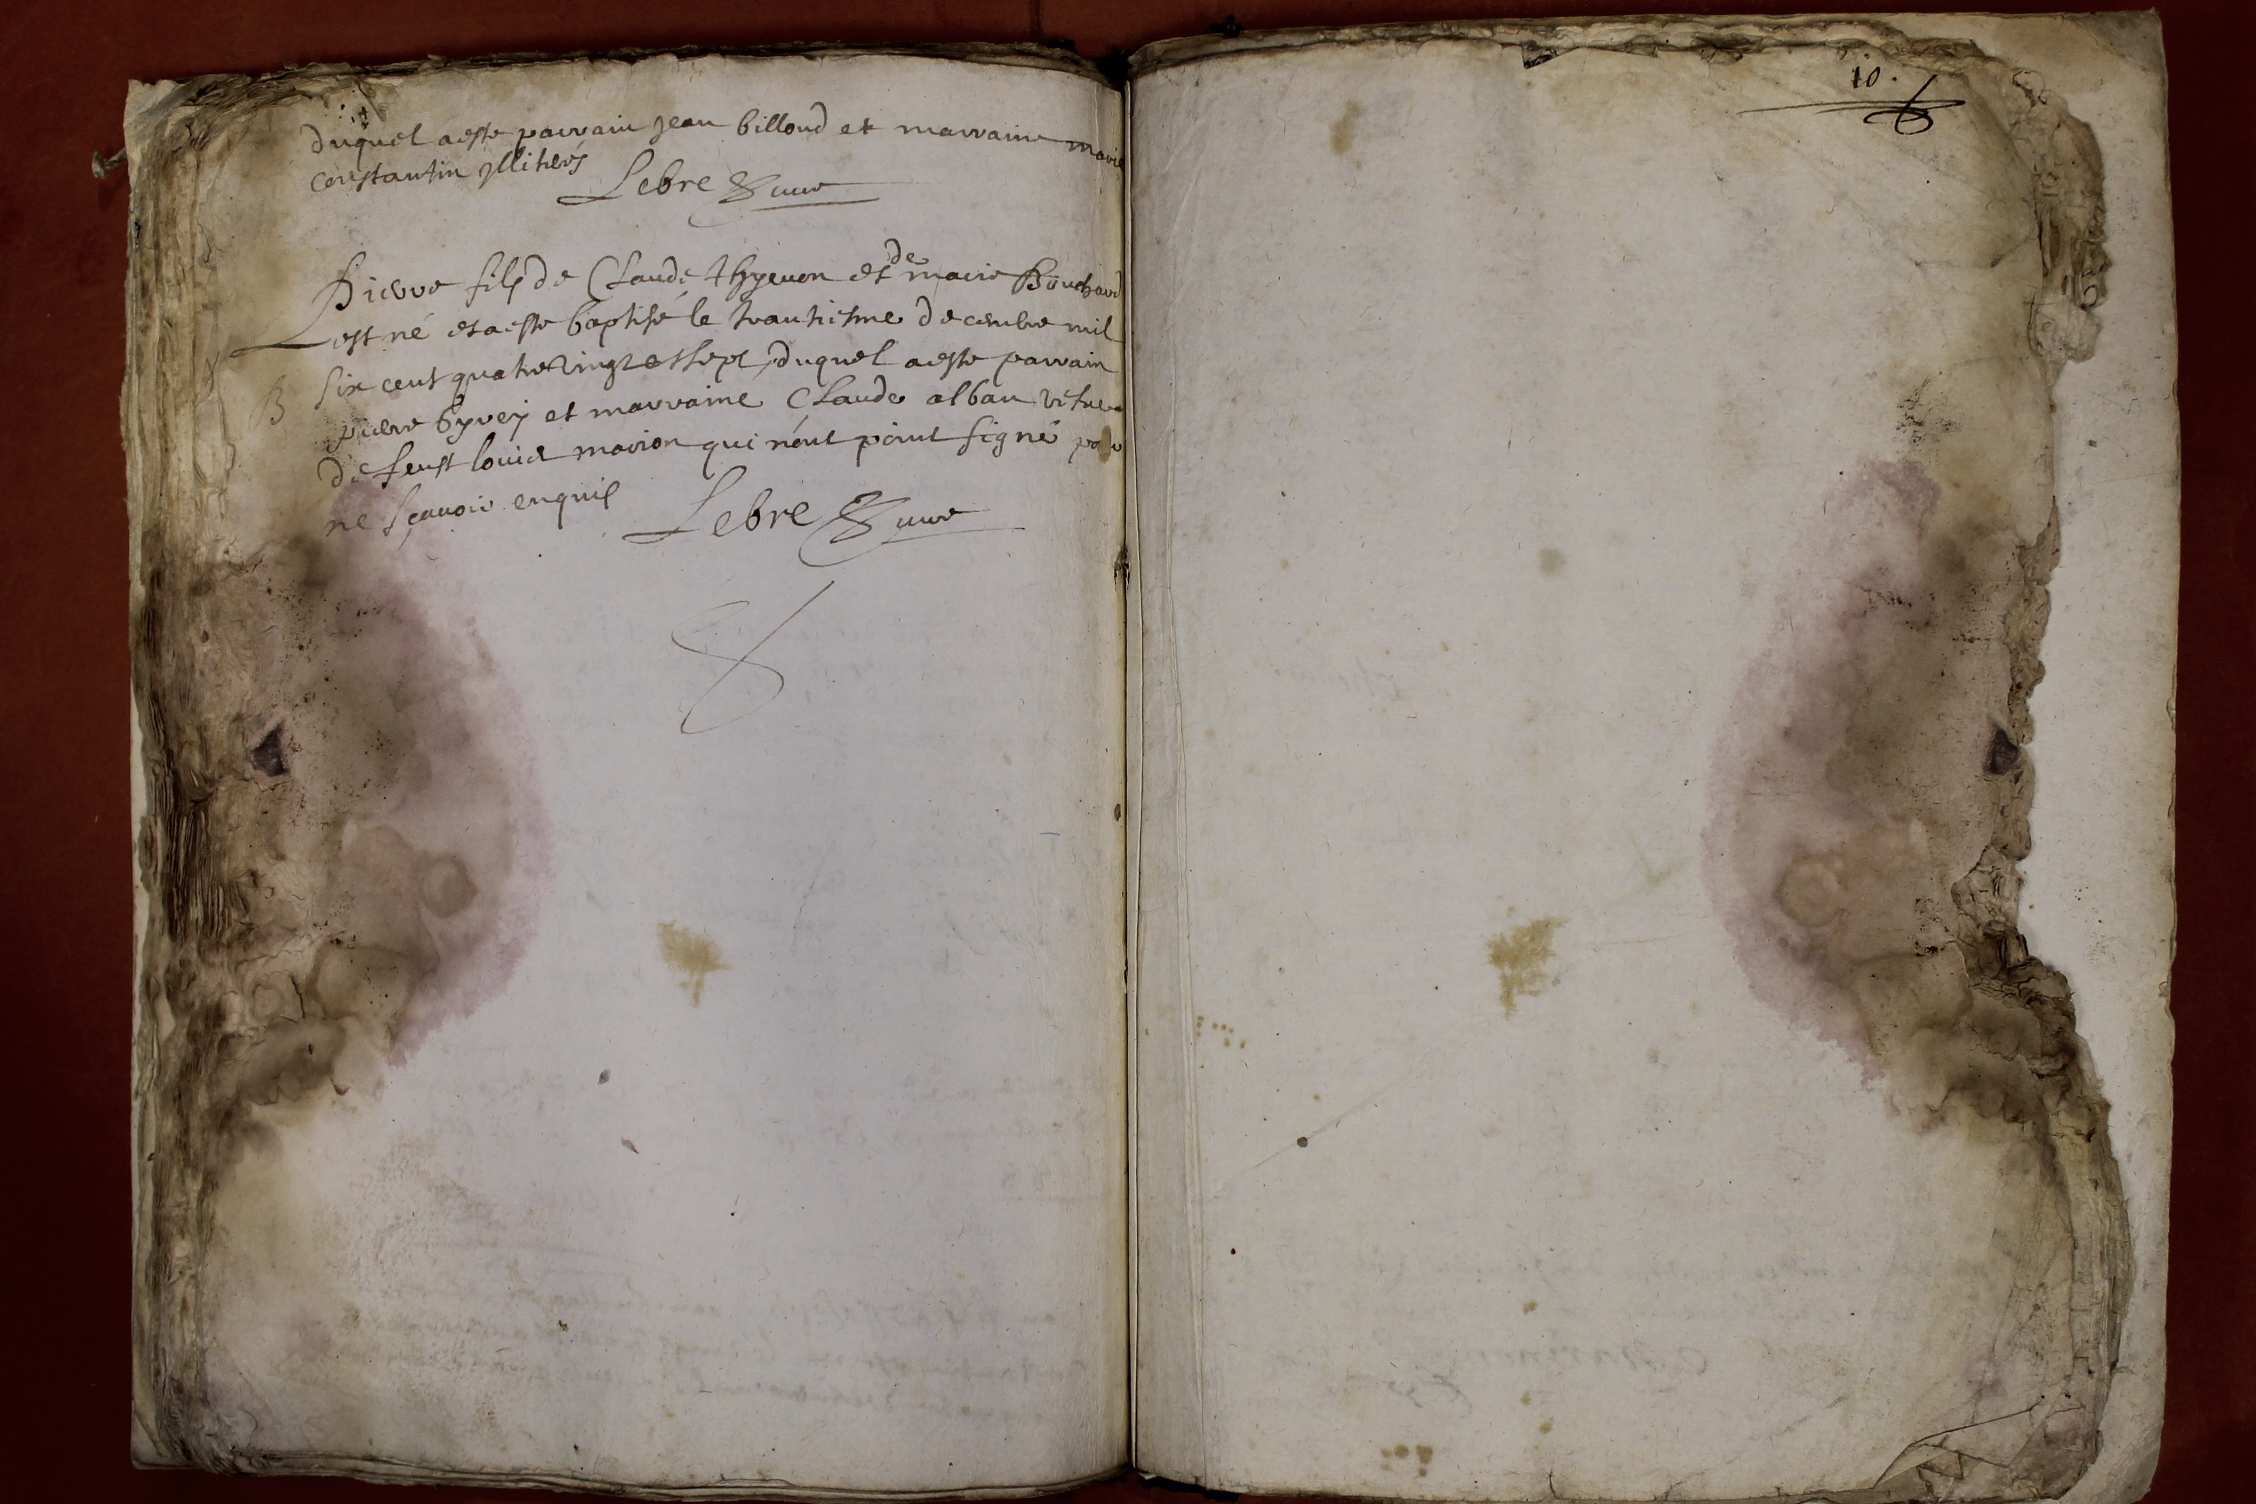 duquel a esté parrain jean billoud et marraine marie
constantin yllitérés
Lebre curé
Pierre fils de Claude thyevon et de marie Bouchard
est né et a esté baptisé le trantiesme decembre mil
B six cent quatre vingt et sept, duquel a esté parrain
pierre byvej et marraine Claude alban vefve
de feust louis marion qui n'ont point signé pour
ne sçavoir enquis
Lebre curé
10.